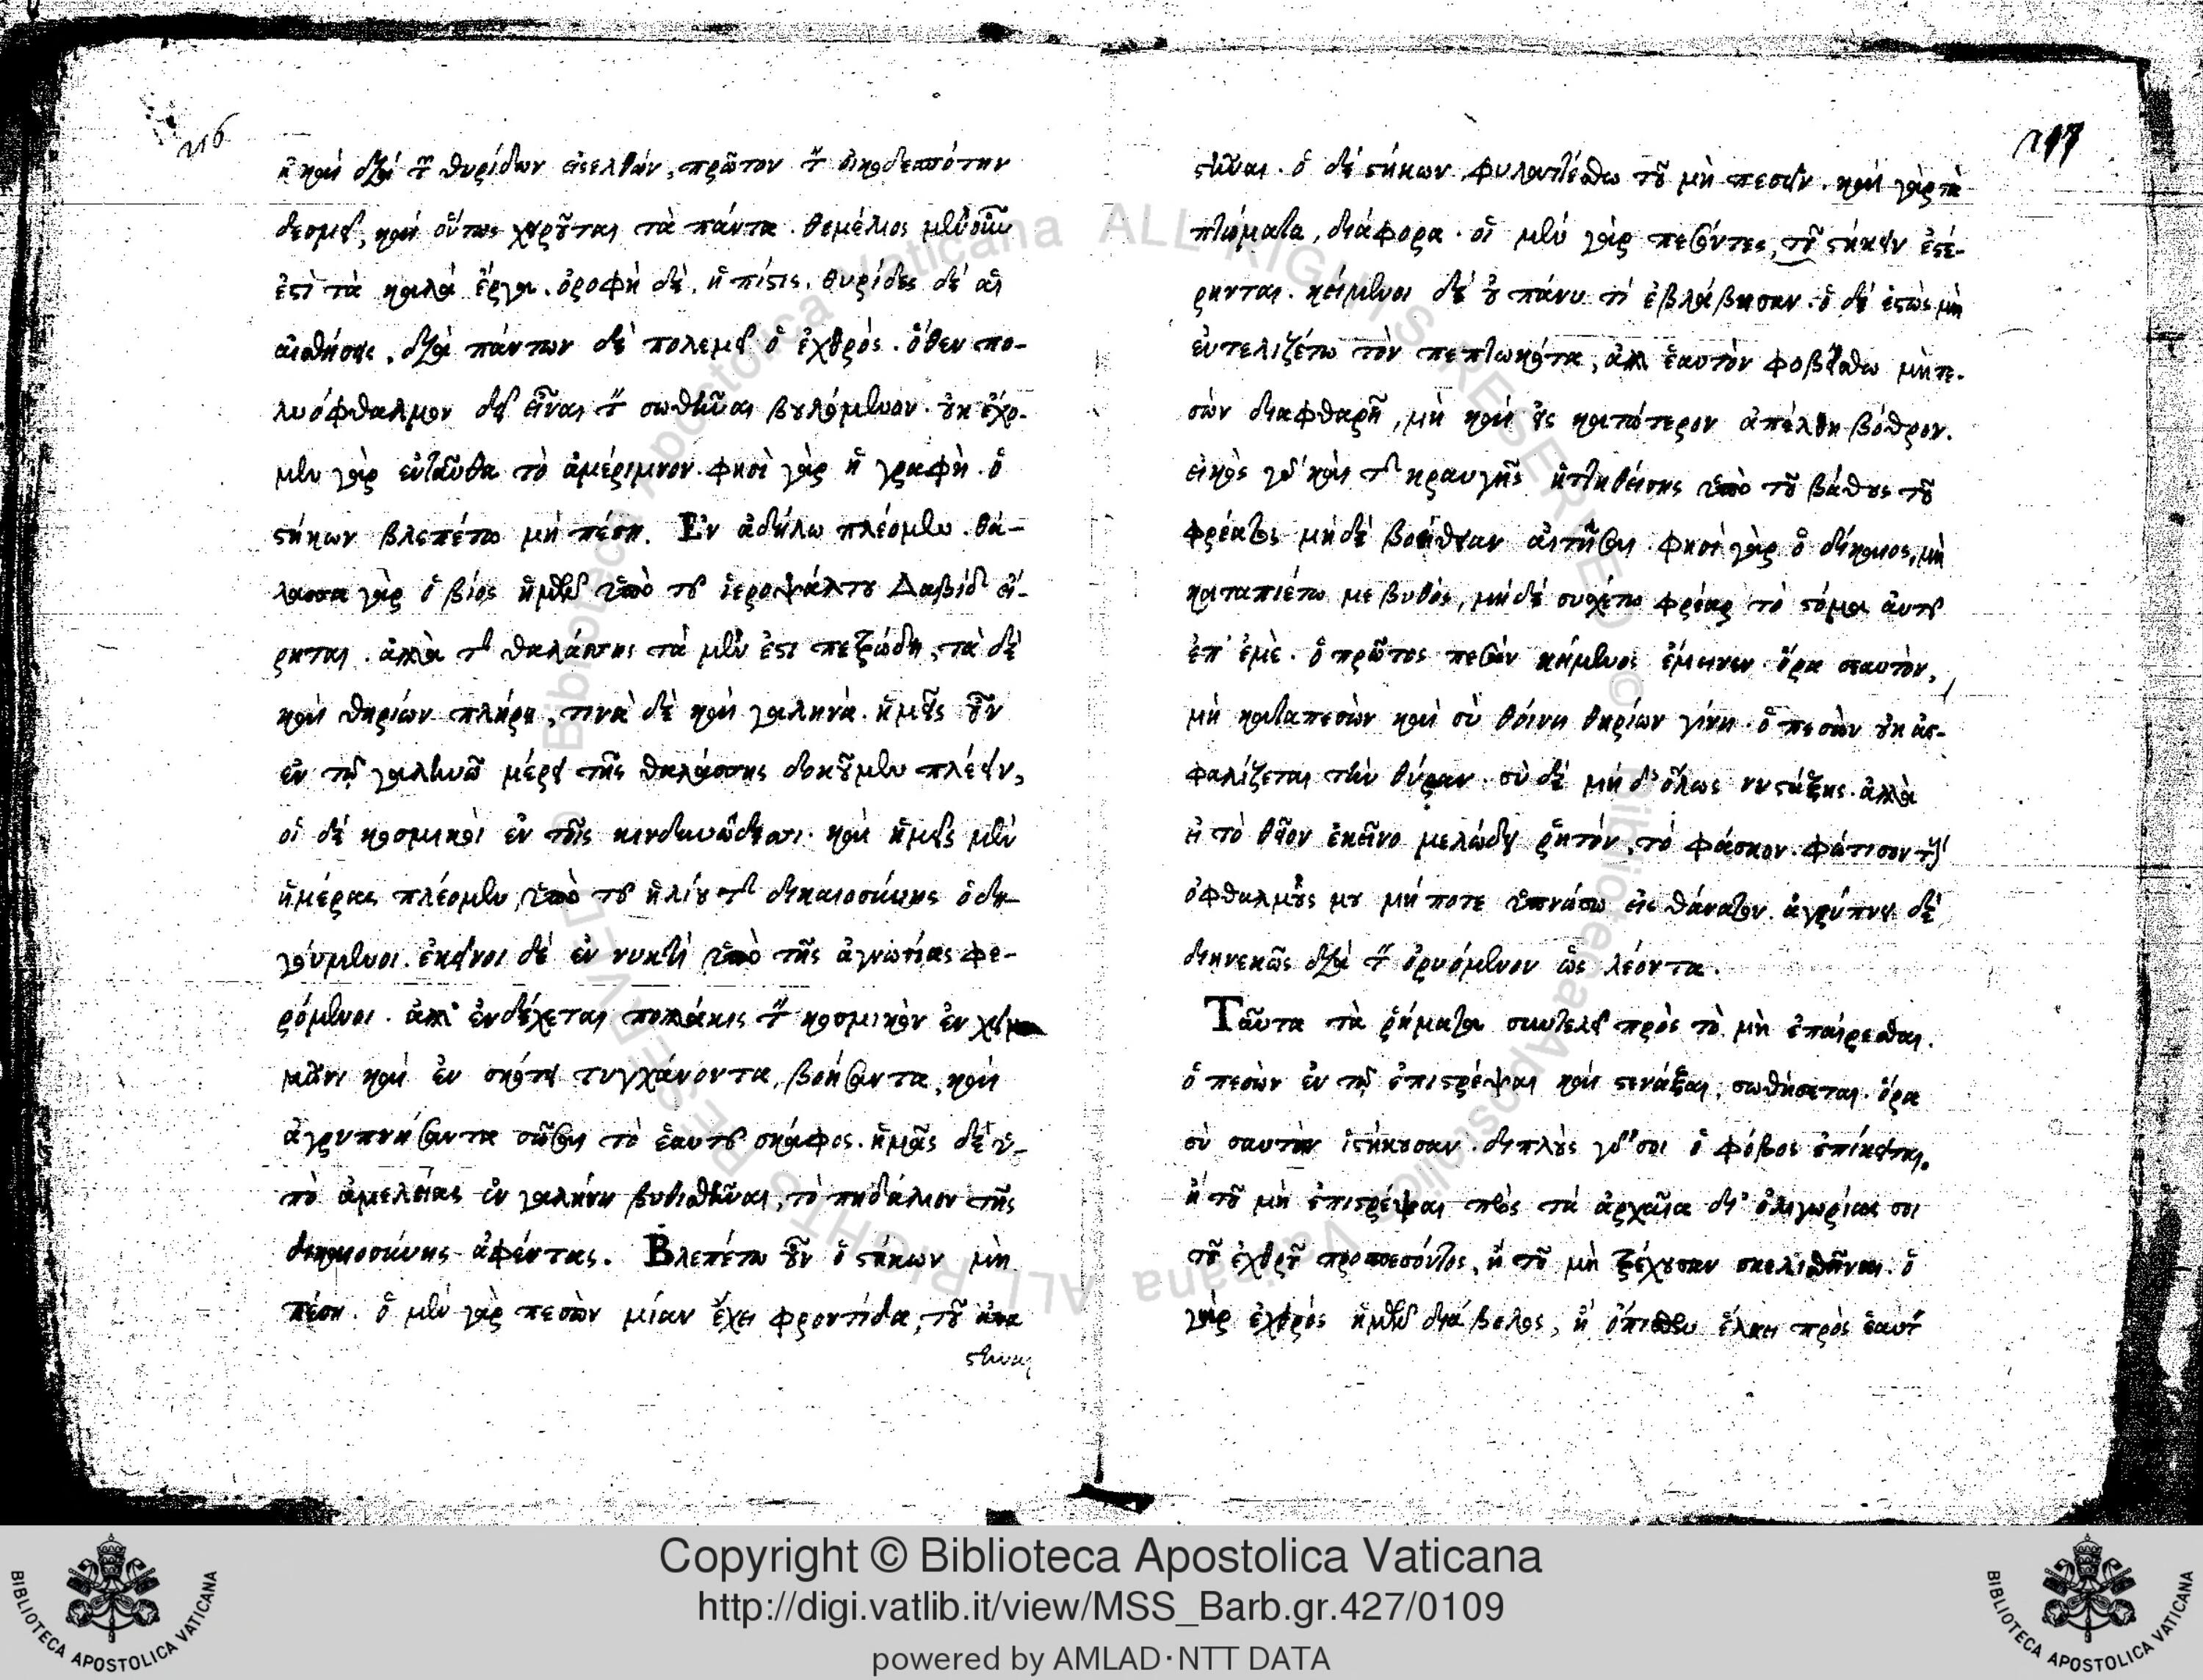 216
ἢ καὶ διὰ τῶν θυρίδων εἰσελθών, πρῶτον τὸν οἰκοδεσπότην
δεσμεῖ, καὶ οὕτως χειροῦται τὰ πάντα. θεμέλιος μὲν οὖν
ἐστὶ τὰ καλὰ ἔργα. ὀροφὴ δὲ, ἡ πίστις. θυρίδες δὲ αἱ
αἰσθήσεις, διὰ πάντων δὲ πολεμεῖ ὁ ἐχθρός. ὅθεν πο-
λυόφθαλμον δεῖ εἶναι τὸν σωθῆναι βουλόμενον. οὐκ ἔχο-
μεν γὰρ ἐνταῦθα τὸ ἀμέριμνον. φησὶ γὰρ ἡ γραφὴ. ὁ
στήκων βλεπέτω μὴ πέσῃ. Ἐν ἀδήλῳ πλέομεν. θά-
λασσα γὰρ ὁ βίος ἡμῶν ὑπὸ τοῦ ἱεροψάλτου Δαβὶδ εἴ-
ρηται. ἀλλὰ τῆς θαλάσσης τὰ μὲν ἐστι πετρώδη, τὰ δὲ
καὶ θηρίων πλήρη, τινὰ δὲ καὶ γαληνά. ἡμεῖς οὖν
ἐν τῷ γαληνῷ μέρει τῆς θαλάσσης δοκοῦμεν πλέειν,
οἱ δὲ κοσμικοὶ ἐν τοῖς κινδυνώδεσι. καὶ ἡμεῖς μὲν
ἡμέρας πλέομεν, ὑπὸ τοῦ ἡλίου τῆς δικαιοσύνης ὁδη-
γούμενοι. ἐκεῖνοι δὲ ἐν νυκτὶ ὑπὸ τῆς ἀγνωσίας φε-
ρόμενοι. ἀλλ' ἐνδέχεται πολλάκις τὸν κοσμικὸν ἐν χει
μῶνι καὶ ἐν σκότει τυγχάνοντα, βοήσαντα, καὶ
ἀγρυπνήσαντα σῶσαι τὸ ἑαυτοῦ σκάφος. ἡμᾶς δὲ ὑ-
πὸ ἀμελείας ἐν γαλήνῃ βυθισθῆναι, τὸ πηδάλιον τῆς
δικαιοσύνης ἀφέντας. Βλεπέτω οὖν ὁ στήκων μὴ
πέσῃ. ὁ μὲν γὰρ πεσὼν μίαν ἔχει φροντίδα, τοῦ ἀνα
στῆναι
217
στῆναι. ὁ δὲ στήκων φυλαττέσθω τοῦ μὴ πεσεῖν. καὶ γὰρ τὰ
πτώματα, διάφορα. οἱ μὲν γὰρ πεσόντες, τοῦ στήκειν ἐστέ-
ρηνται. κείμενοι δὲ οὐ πάνυ τί ἐβλάβησαν. ὁ δὲ ἑστὼς μὴ
εὐτελιζέτω τὸν πεπτωκότα, ἀλλ' ἑαυτὸν φοβείσθω μὴ πε-
σὼν διαφθαρῇ, μὴ καὶ εἰς κατώτερον ἀπέλθῃ βόθρον.
εἰκὸς γὰρ καὶ τῆς κραυγῆς ἡττηθείσης ὑπὸ τοῦ βάθους τοῦ
φρέατος μὴ δὲ βοήθειαν αἰτῆσαι. φησὶ γὰρ ὁ δίκαιος, μὴ
καταπιέτω με βυθὸς, μὴ δὲ συσχέτω φρέαρ τὸ στόμα αὐτοῦ
ἐπ' ἐμὲ. ὁ πρῶτος πεσὼν κείμενος ἔμεινεν. ὅρα σεαυτὸν,
μὴ καταπεσὼν καὶ σὺ θοίνη θηρίων γίνῃ. ὁ πεσὼν οὐκ ἀσ-
φαλίζεται τὴν θύραν. σὺ δὲ μὴ δ' ὅλως νυστάξῃς. ἀλλὰ
τὸ θεῖον ἐκεῖνο μελώδει ῥητόν, τὸ φάσκον. φώτισον τοὺς
ὀφθαλμούς μου μήποτε ὑπνώσω εἰς θάνατον. ἀγρύπνει δὲ
διηνεκῶς διὰ τὸν ὀρυόμενον ὡς λέοντα.
Ταῦτα τὰ ῥήματα συντελεῖ πρὸς τὸ μὴ ἐπαίρεσθαι.
ὁ πεσὼν ἐν τῷ ἐπιστρέψαι καὶ στενάξαι, σωθήσεται. ὅρα
σὺ σαυτὴν ἱστήκουσαν. διπλοῦς γὰρ σοι ὁ φόβος ἐπίκειται.
ἢ τοῦ μὴ ἐπιστρέψαι πρὸς τὰ ἀρχαῖα δι' ὀλιγωρίας σοι
τοῦ ἐχθροῦ προσπεσόντος, ἢ τοῦ μὴ τρέχουσαν σκελισθῆναι. ὁ
γὰρ ἐχθρὸς ἡμῶν διάβολος, ἢ ὄπισθεν ἕλκει πρὸς ἑαυτὸν
Copyright © Biblioteca Apostolica Vaticana
http://digi.vatlib.it/view/MSS_Barb.gr.427/0109
powered by AMLAD·NTT DATA
BIBLIOTECA APOSTOLICA VATICANA
BIBLIOTECA APOSTOLICA VATICANA